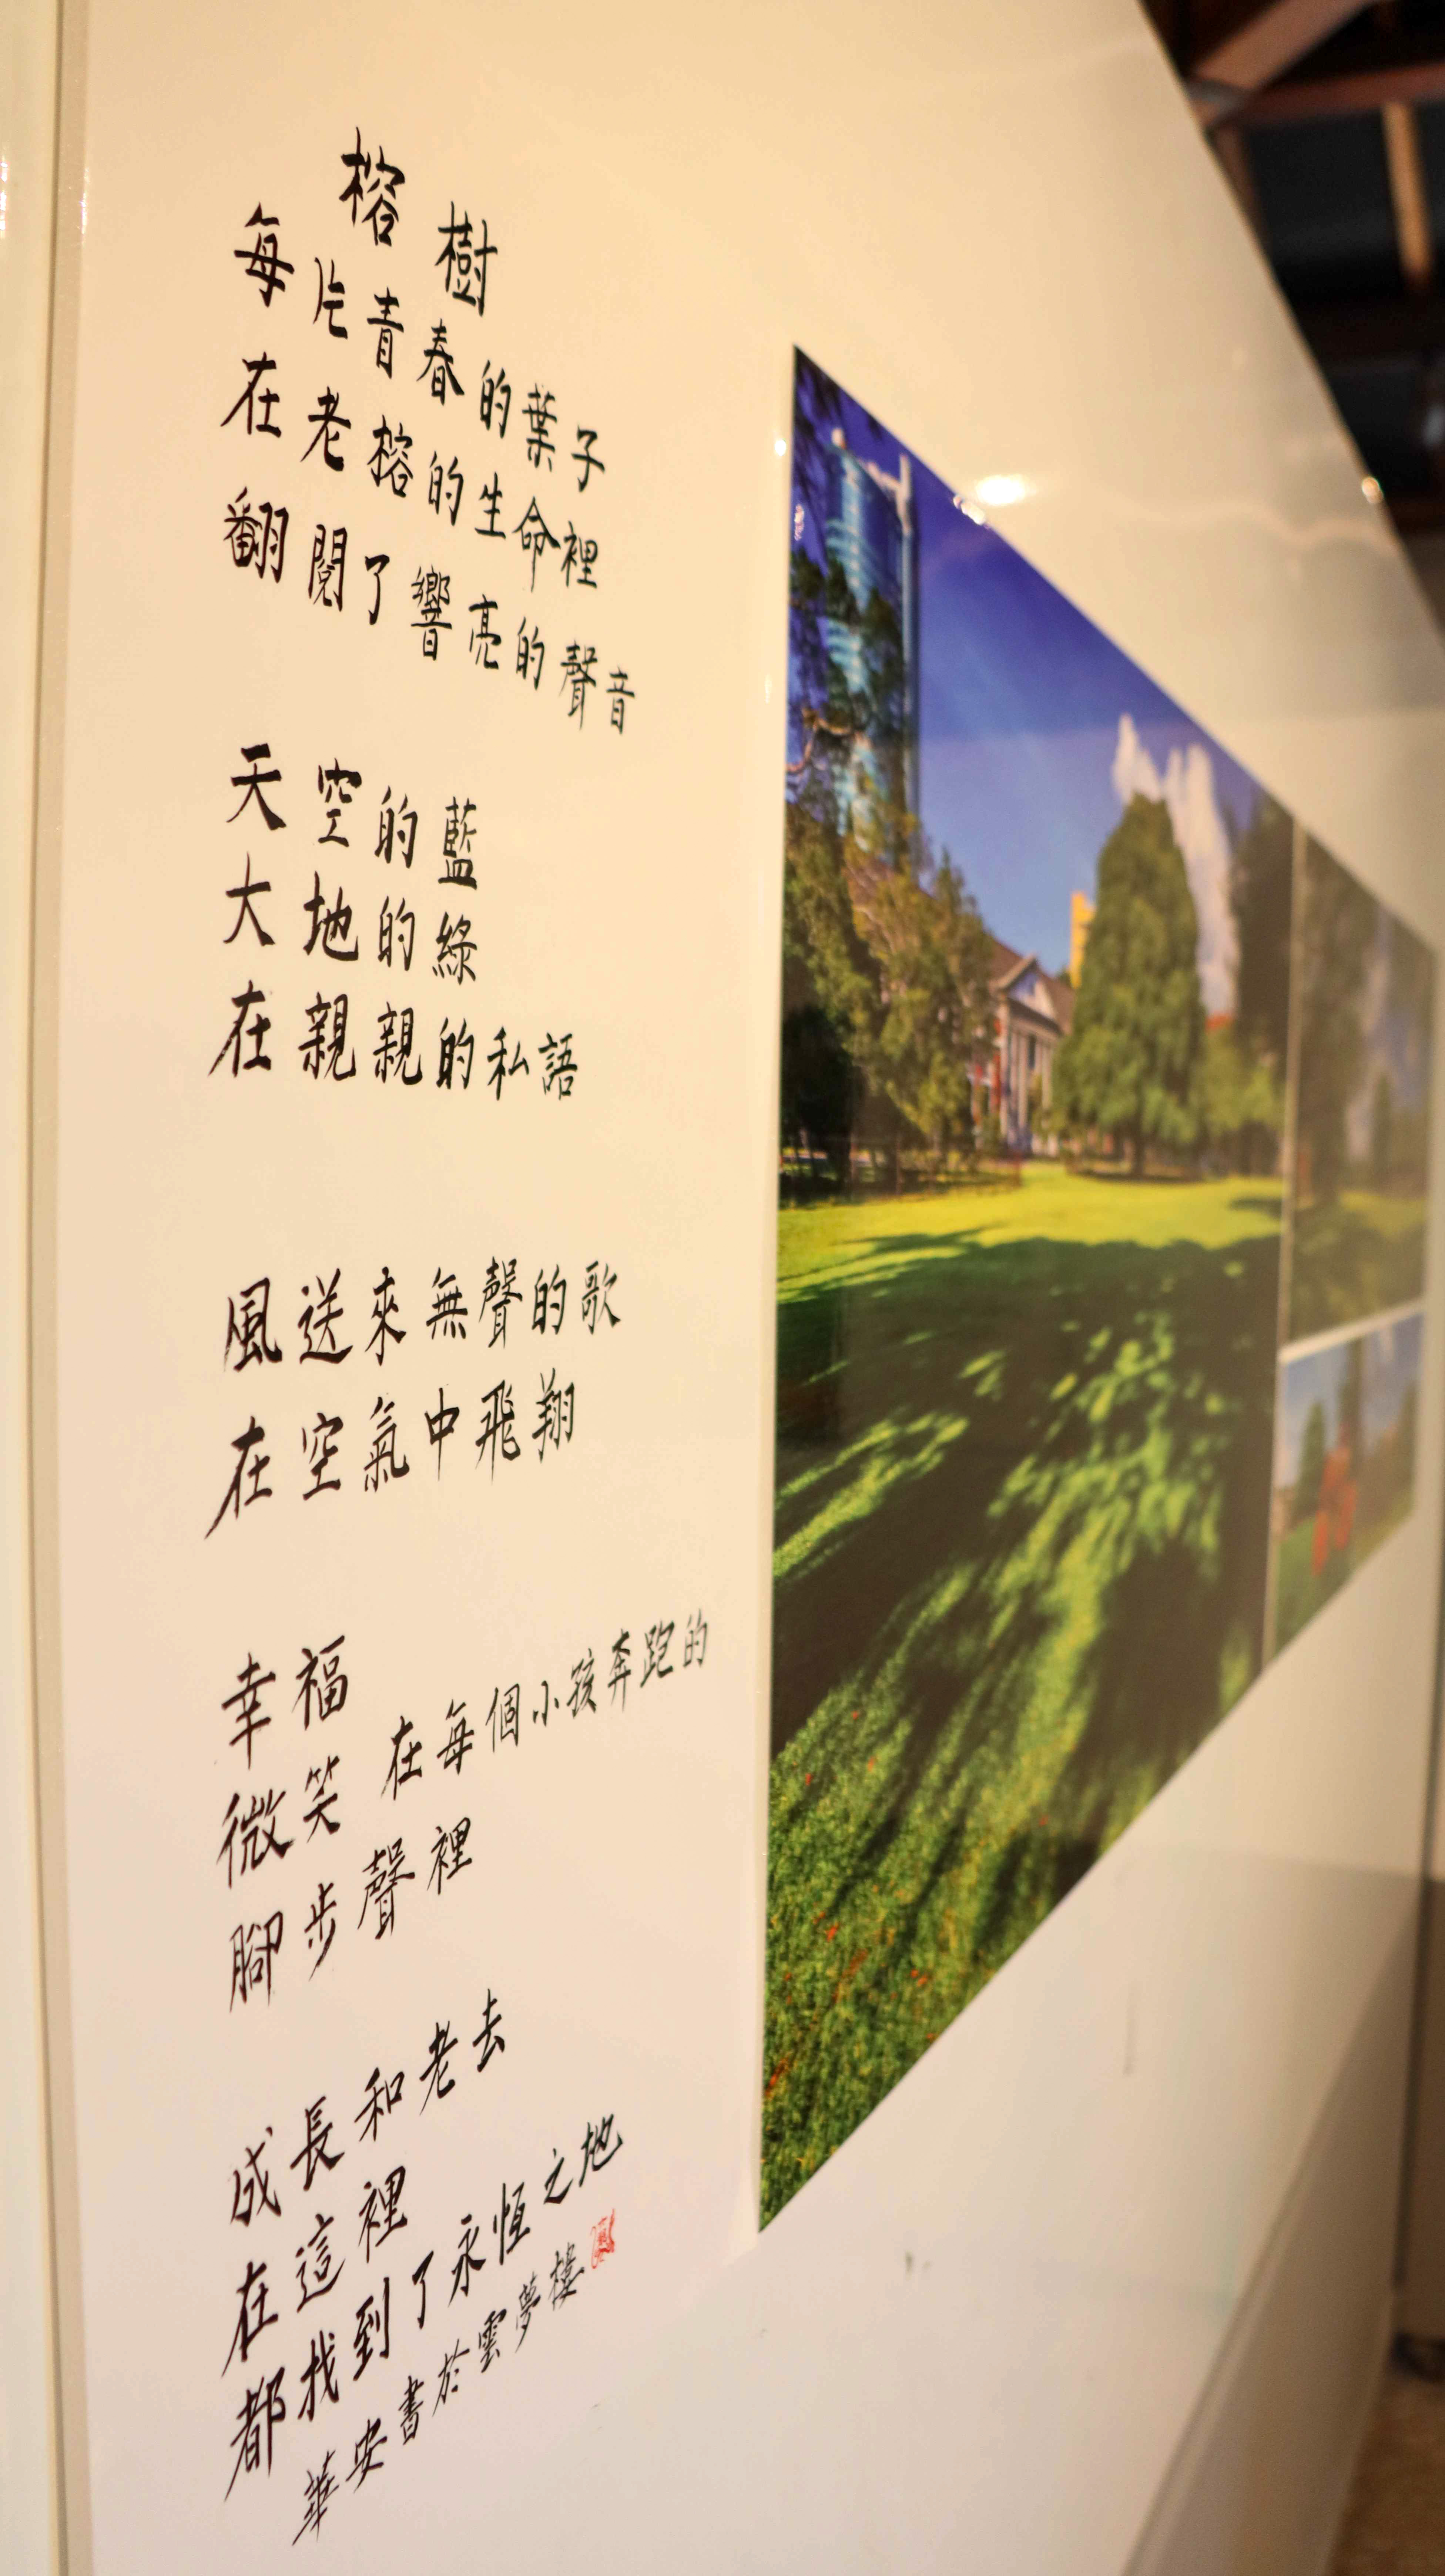 榕樹
每片青春的葉子
在老榕的生命裡
翻閱了響亮的聲音
天空的藍
大地的綠
在親親的私語
風送來無聲的歌
在空氣中飛翔
幸福
微笑 在每個小孩奔跑的
腳步聲裡
成長和老去
在這裡
都找到了永恆之地
華安書於雲夢樓